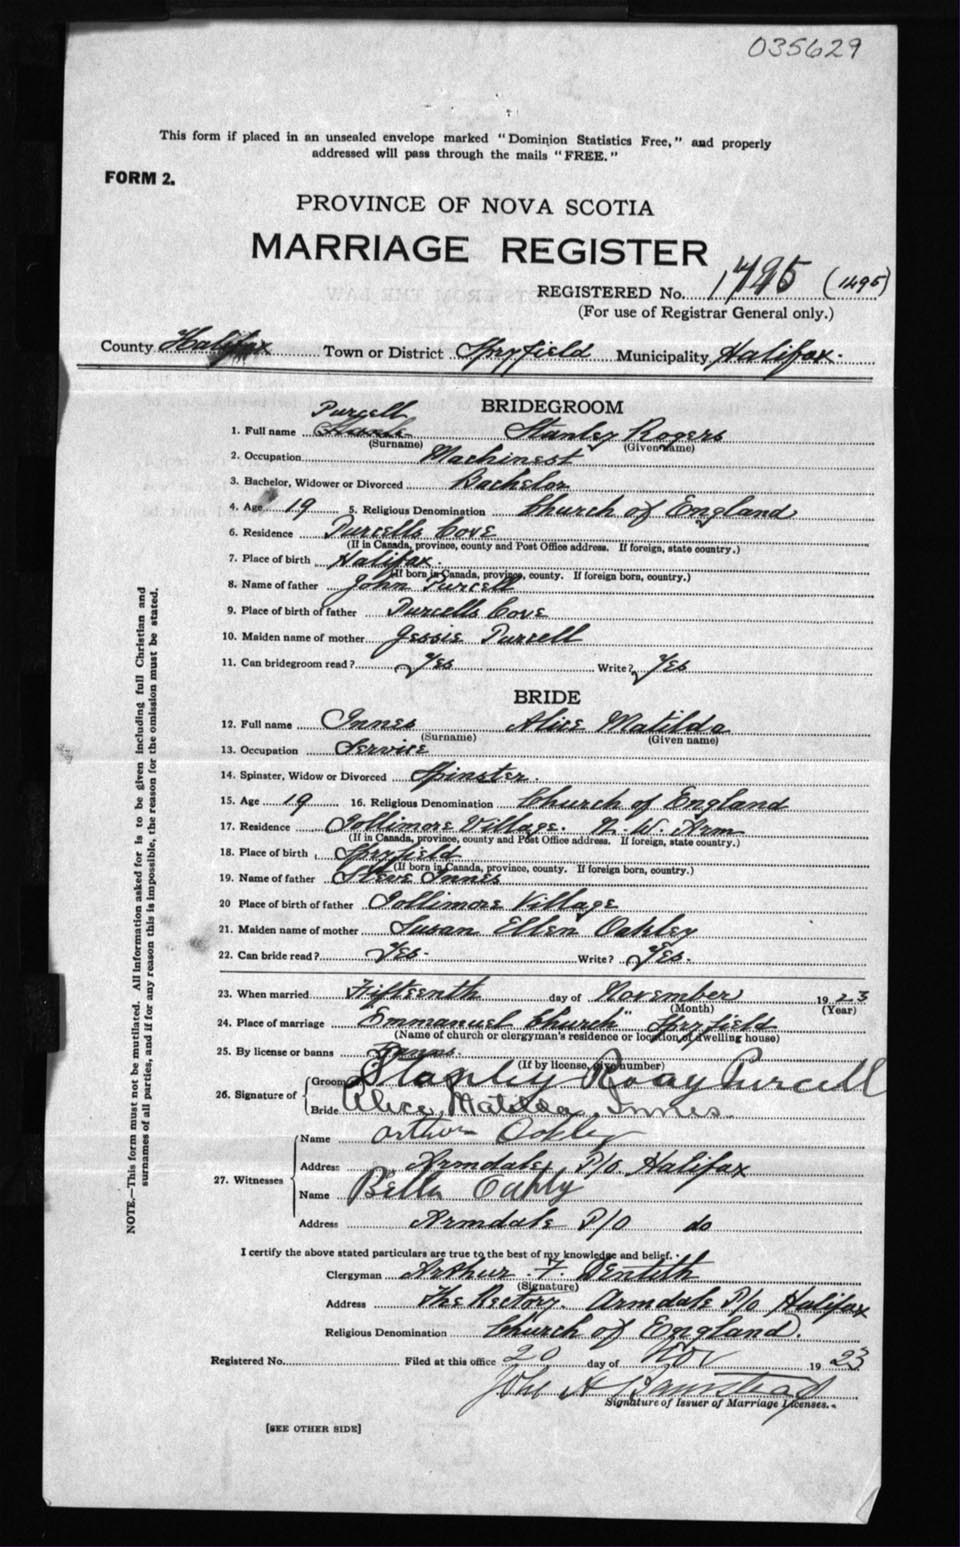 035629
This form if placed in an unsealed envelope marked "Dominion Statistics Free," and properly
addressed will pass through the mails "FREE."
FORM 2.
PROVINCE OF NOVA SCOTIA
MARRIAGE REGISTER
REGISTERED No. 1495 (1495)
(For use of Registrar General only.)
County Halifax Town or District Spryfield Municipality Halifax.
BRIDEGROOM
Purcell
1. Full name Stanley Rogers
(Surname) (Given name)
2. Occupation Machinest
3. Bachelor, Widower or Divorced Bachelor
4. Age 19 5. Religious Denomination Church of England
6. Residence Purcells Cove
(If in Canada, province, county and Post Office address. If foreign, state country.)
7. Place of birth Halifax.
(If born in Canada, province, county. If foreign born, country.)
8. Name of father John Purcell
9. Place of birth of father Purcells Cove
10. Maiden name of mother Jessie Purcell
11. Can bridegroom read? Yes Write? Yes
BRIDE
12. Full name Innes Alice Matilda
(Surname) (Given name)
13. Occupation Service
14. Spinster, Widow or Divorced Spinster.
15. Age 19 16. Religious Denomination Church of England
17. Residence Jollimore Village. N. W. Arm
(If in Canada, province, county and Post Office address. If foreign, state country.)
18. Place of birth Spryfield
(If born in Canada, province, county. If foreign born, country.)
19. Name of father Steve Innes
20 Place of birth of father Jollimore Village
21. Maiden name of mother Susan Ellen Oakley
22. Can bride read? Yes. Write? Yes.
23. When married Fifteenth day of November 1923
(Month) (Year)
24. Place of marriage Emmanuel Church" Spryfield
(Name of church or clergyman's residence or location of dwelling house)
25. By license or banns Banns.
(If by license, give number)
26. Signature of
Groom Stanley Roay Purcell
Bride Alice, Matilda, Innes.
27. Witnesses
Name Arthur Oakley
Address Armdale, P/O Halifax
Name Bella Oakly
Address Armdale P/O do
I certify the above stated particulars are true to the best of my knowledge and belief.
Clergyman Arthur F. Dentith
(Signature)
Address The Rectory. Armdale P/o Halifax
Religious Denomination Church of England.
Registered No. Filed at this office 20 day of Nov 1923
John H
Signature of Issuer of Marriage Licenses.
[SEE OTHER SIDE]
NOTE.—This form must not be mutilated. All information asked for is to be given including full Christian and
surnames of all parties, and if for any reason this is impossible, the reason for the omission must be stated.